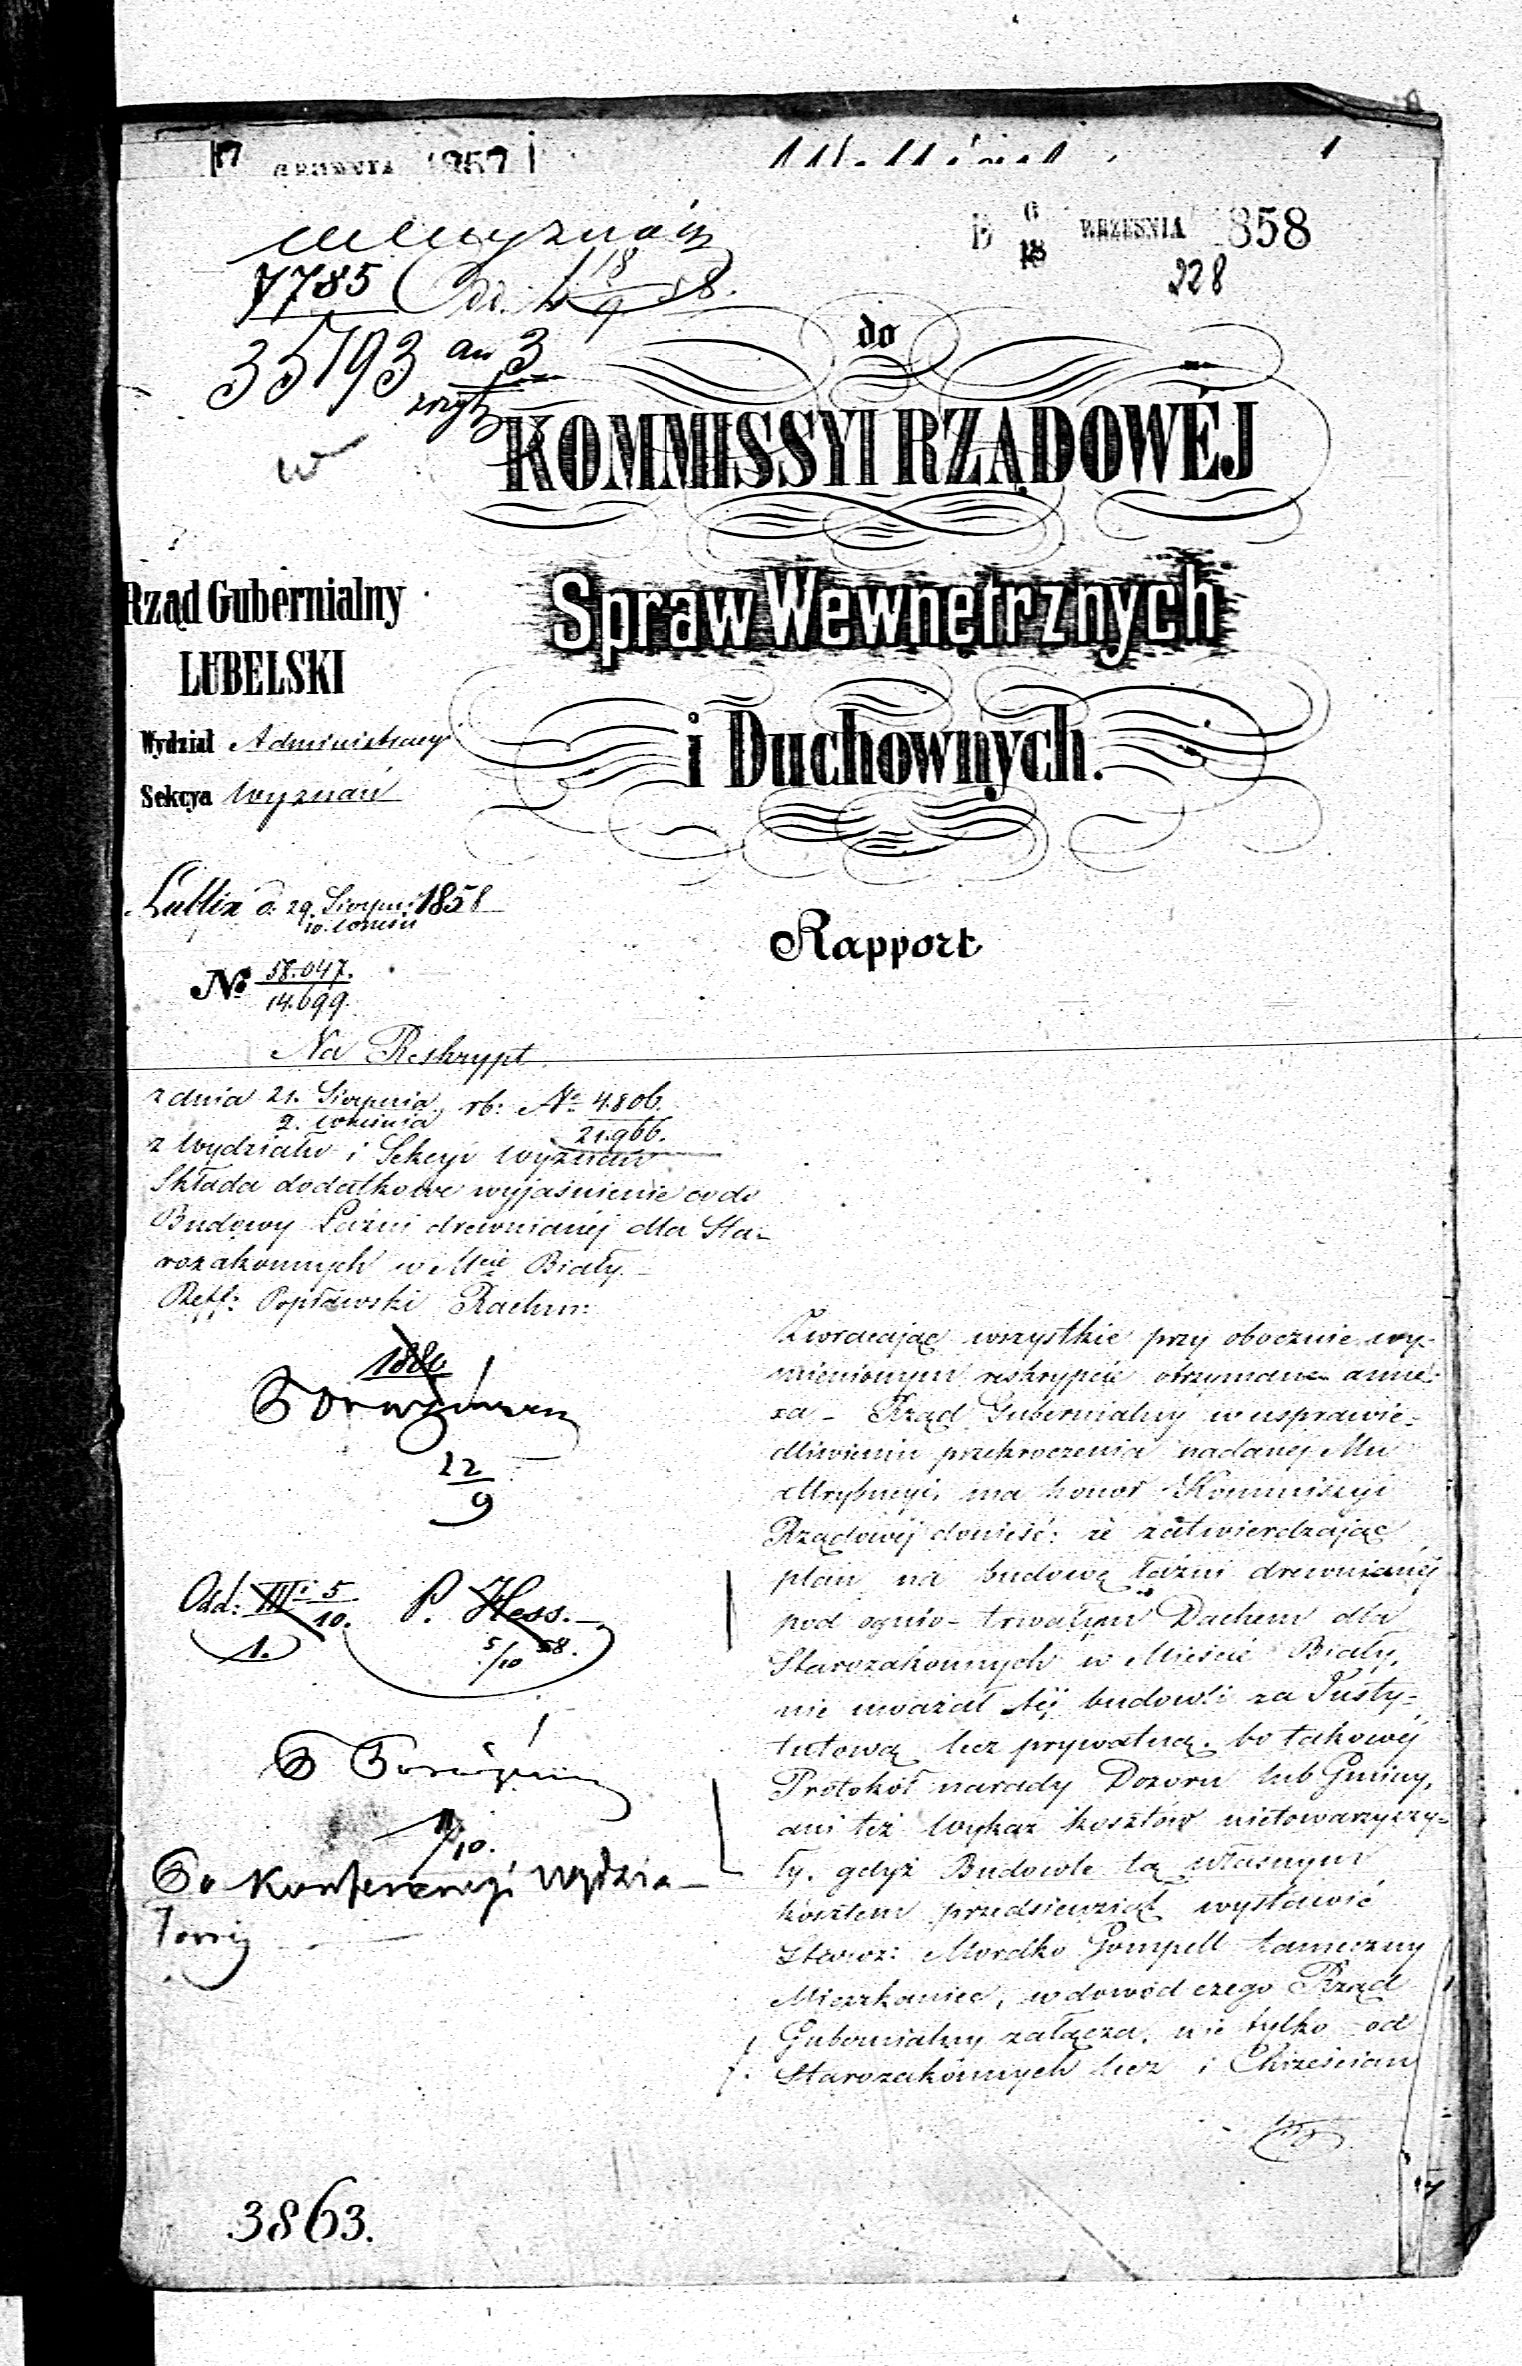 1
6
18
WRZEŚNIA 1858
228
7785
18
9
58.
35193 an 3
do
KOMMISSYI RZĄDOWÉJ
Spraw Wewnętrznych
i Duchownych.
Rząd Gubernialny
LUBELSKI
Wydział Administracyj
Sekcya Wyznań
Lublin d: 29. Sierpnia 1858
10. Wrześn
Rapport
Nr 58.047.
14.699.
Na Reskrypt
z dnia 21. Sierpnia rb: No 4.806.
2. Września
21.966.
z Wydziału i Sekcyi Wyznań
Składa dodatkowe wyjaśnienie co do
Budowy Łaźni drewnianéj dla Sta-
rozakonnych w Mcie Biały.
Reff: Popławski Rachm:
22
9
Odd: III i 5
10.
1.
P. Hess.
5/10 58.
10.
Do Konferencyi Wydzia-
łowéj
Zwracając wszystkie przy obocznie wy-
mienionym reskrypcie otrzymane anne-
xa - Rząd Gubernialny w usprawie-
dliwieniu przekroczenia nadanéj Mu
attrybucyi, ma honor Kommissyi
Rządowéj donieść: że zatwierdzając
plan na budowę łaźni drewnianéj
pod ognio-trwałym Dachem dla
Starozakonnych w Mieście Biały,
nie uważał téj budowli za Insty-
tutową lecz prywatną. bo takowéj
Protokół narady Dozoru lub Gminy,
ani téż Wykaz kosztów nietowarzyszy-
ły. gdyż Budowle tą własnym
kosztem przedsięwziął wystawić
Staroz: Mordko Gompell tameczny
Mieszkaniec, w dowód czego Rząd
Gubernialny załącza, nie tylko od
Starozakonnych lecz i Chrześcian
3863.